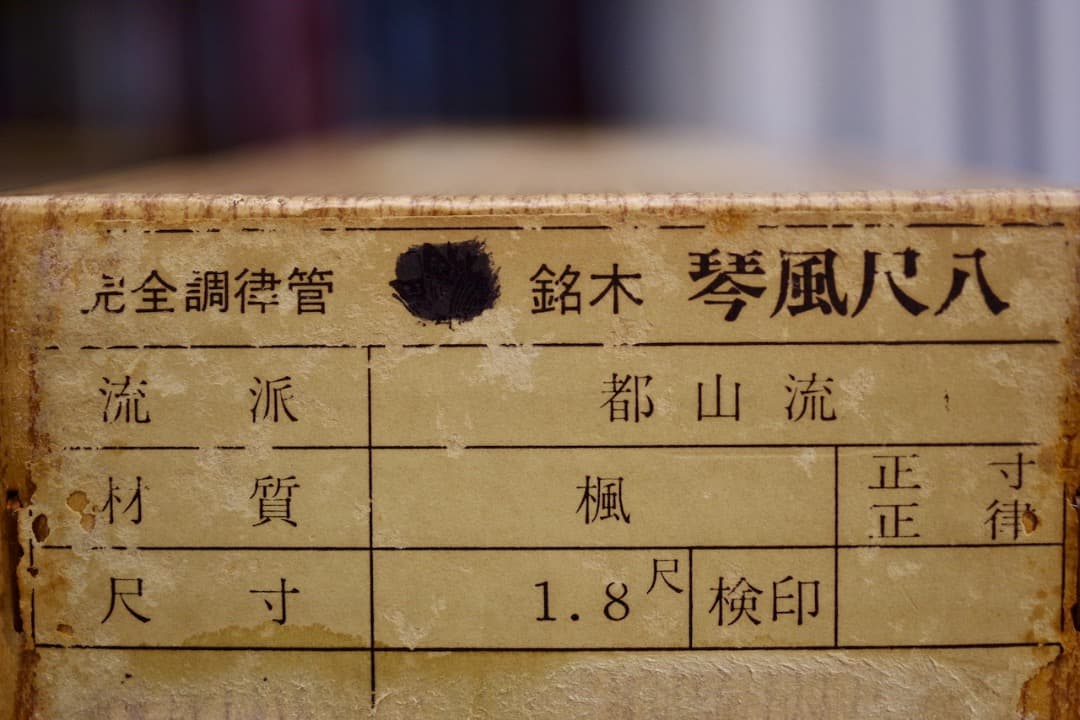 完全調律管 銘木 琴風尺八
流派 都山流
材質 楓 正寸
正律
尺寸 1.8尺 検印